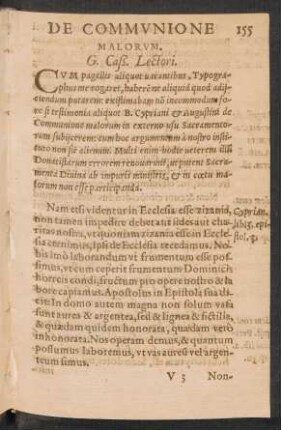 DE COMMVNIONE 155
MALORVM.
G. Caß. Lectori.
CVM pagellis aliquot vacantibus, Typogra-
phus me rogaret, haberémne aliquid quod adij-
ciendum putarem: existimabam nõ incommodum fo-
re si testimonia aliquot B. Cypriani & Augustini de
Communione malorum in externo vsu Sacramento-
rum subijcerem: cum hoc argumentum à nostro insti-
tuto non sit alienum. Multi enim hodie veterem illũ
Donatistarum errorem renouarunt, vt putent Sacra-
menta Diuina ab impuris ministris, & in cœtu ma-
lorum non esse participanda.
Nam etsi videntur in Ecclesia esse zizania,
non tamen impedire debet aut fides aut cha-
ritas nostra, vt quoniam zizania esse in Eccle
sia cernimus, ipsi de Ecclesia recedamus. No-
bis imò laborandum vt frumentum esse pos-
simus, vt cum ceperit frumentum Dominicis
horreis condi, fructum pro opere nostro & la
bore capiamus. Apostolus in Epistola sua di-
cit: In domo autem magna non solum vasa
sunt aurea & argentea, sed & lignea & fictilia,
& quædam quidem honorata, quædam verò
inhonorata. Nos operam demus, & quantum
possumus laboremus, vt vas aureũ vel argen-
teum simus.
Cyprian.
lib.3. epi-
stol. 3.
V 3 Non-